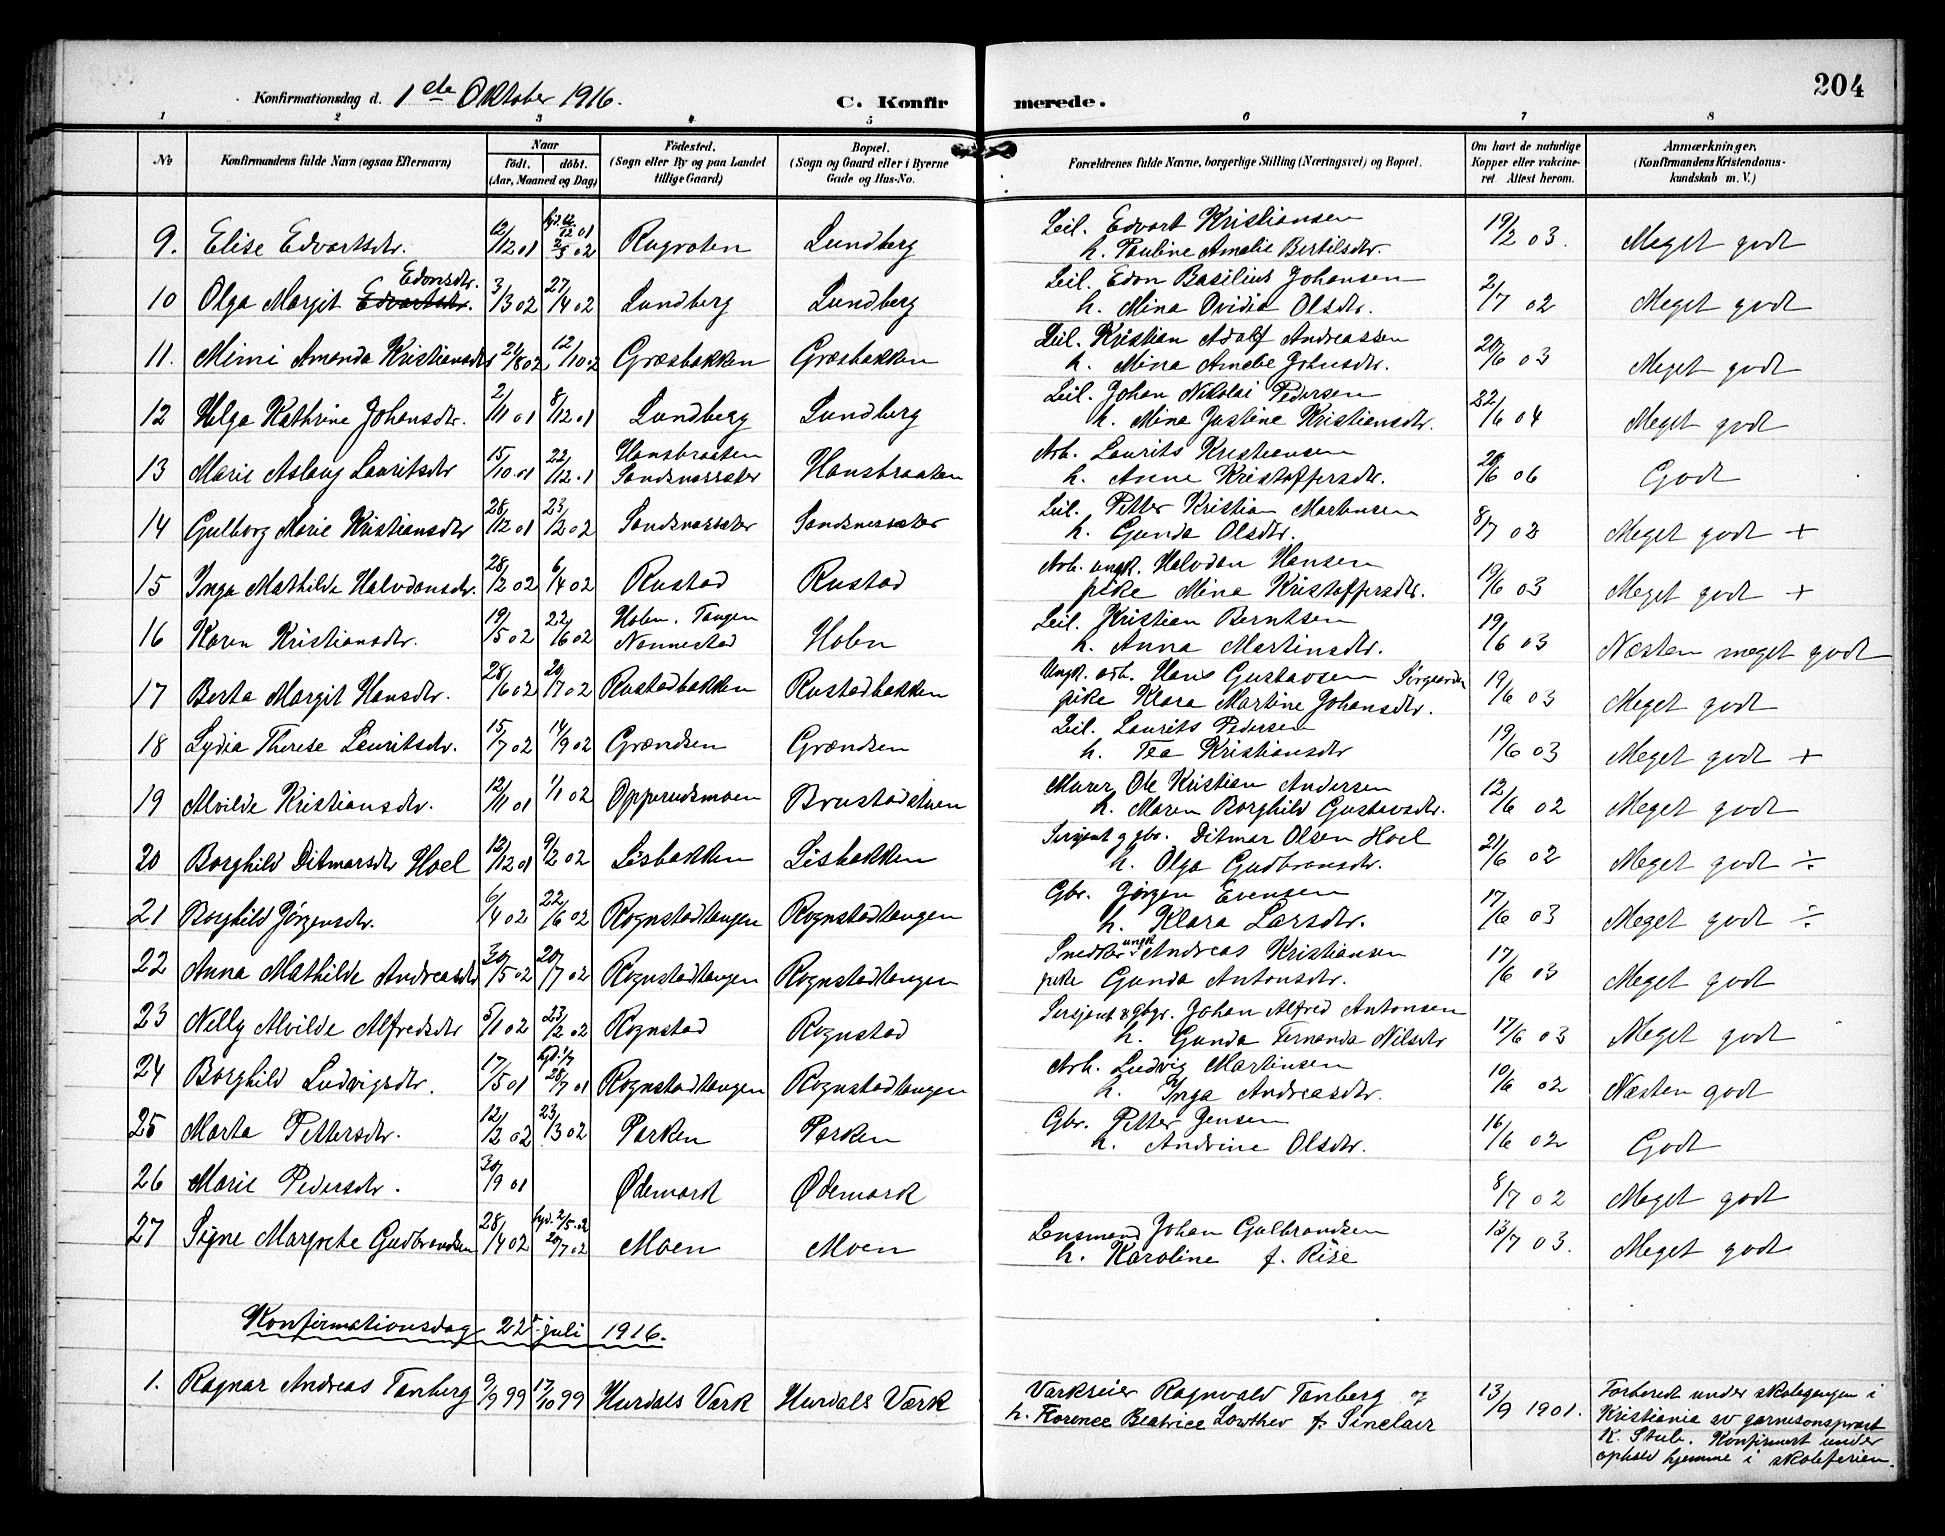 Konfirmationsdag d. 1ste Oktober 1916.
C. Konfirmerede.
204
1 2 3 4 5 6 7 8
No
Konfirmandens fulde Navn (ogsaa Efternavn)
Naar
født. døbt.
(Aar, Maaned og Dag)
Fødested.
(Sogn eller By og paa Landet
tillige Gaard)
Bopæl.
(Sogn og Gaard eller i Byerne
Gade og Hus-No.
Forældrenes fulde Navne, borgerlige Stilling (Næringsvei) og Bopæl.
Om havt de naturlige
Kopper eller vakcine-
ret. Attest herom.
Anmærkninger.
(Konfirmandens Kristendoms-
kundskab m. V.)
9. Elise Edvartsdtr. 12/12 01 hjd. 12/12 01 2/3 02 Rugroten Lundberg Leil. Edvart Kristiansen 19/2 03. Meget godt
h. Pauline Amalie Bertilsdtr.
10 Olga Margit Edvartsdtr. Edonsdtr. 3/3 02 27/4 02 Lundberg Lundberg Leil. Edon Basilius Johansen 2/7 02 Meget godt
h. Mina Ovidia Olsdtr.
11. Mimi Amanda Kristiansdtr 24/8 02 12/10 02 Græsbakken Græsbakken Leil. Kristian Adolf Andreassen 20/6 03 Meget godt
h. Mina Amalie Johnsdtr.
12 Helga Kathrine Johansdtr. 2/11 01 8/12 01 Lundberg Lundberg Leil. Johan Nikolai Pedersen 22/6 04 Meget godt
h. Mina Justine Kristiansdtr.
13 Marie Aslaug Lauritsdtr 15/10 01 22/12 1 Hansbraaten Sandsnessæter Hansbraaten Arb. Laurits Kristiansen 20/6 06 Godt
h. Anne Kristoffersdtr.
14 Gulborg Marie Kristiansdtr 28/12 01 23/2 02 Sandsnessæter Sandsnessæter Leil. Petter Kristian Martinsen 8/7 02 Meget godt +
h. Gunda Olsdtr.
15 Inga Mathilde Halvdansdtr. 28/2 02 6/4 02 Rustad Rustad Arb. ungk. Halvdan Hansen 19/6 03 Meget godt +
pike Mina Kristoffersdtr.
16 Karen Kristiansdtr. 19/5 02 22/6 02 Holen, Tangen Nannestad Holen Leil. Kristian Berntsen 19/6 03 Næsten meget godt
h. Anna Martinsdtr.
17 Berta Margit Hansdtr. 28/6 02 20/7 02 Rustadbakken Rustadbakken Ungk. arb. Hans Gustavsen 19/6 03 Meget godt
pike Klara Martine Johansdtr.
18 Lydia Therese Lauritsdtr. 15/7 02 14/9 02 Grændsen Grændsen Leil. Laurits Pedersen 19/6 03 Meget godt +
h. Tea Kristiansdtr
19 Alvilde Kristiansdtr. 12/11 01 1/1 02 Opperudsmoen Brustadstuen Murer Ole Kristian Andersen 12/6 02 Meget godt
h. Maren Borghild Gustavsdtr.
20 Borghild Ditmarsdtr Hoel 12/12 01 9/2 02 Lisbakken Lisbakken Sersjant g gbr. Ditmar Olsen Hoel 21/6 02 Meget godt ÷
h. Olga Gudbransdtr.
21 Borghild Jørgensdtr. 6/4 02 22/6 02 Rognstadtangen Rognstadtangen Gbr. Jørgen Evensen 17/6 03 Meget godt ÷
h. Klara Larsdtr.
22 Anna Mathilde Andreasdtr 30/5 02 20/7 02 Rognstadtangen Rognstadtangen Snedker ungk. Andreas Kristiansen 17/6 03 Meget godt
pike Gunda Antonsdtr.
23 Nelly Alvilde Alfredsdtr 5/1 02 23/2 02 Rognstad Rognstad Sersjant & gbgr. Johan Alfred Antonsen 17/6 03 Meget godt
h. Gunda Fernanda Nilsdtr
24 Borghild Ludvigsdtr. 17/5 01 hjd. 1/7 28/7 01 Rognstadtangen Rognstadtangen Arb. Ludvig Martinsen 10/6 02 Næsten godt
h. Inga Andreasdtr.
25 Marta Pettersdtr. 12/2 02 23/3 02 Parken Parken Gbr. Petter Jensen 16/6 02 Godt
h. Andrine Olsdtr.
26 Marie Pedersdtr. 30/9 01 Ødemark Ødemark 8/7 02 Meget godt
27 Signe Margrete Gudbrandsen 28/4 02 hjd. 2/5.02 20/7 02 Moen Moen Lensmand Johan Gulbrandsen 13/7 03. Meget godt
h. Karoline f. Rise
Konfirmationsdag 22 juli 1916.
1. Ragnar Andreas Tanberg 9/9 99 17/10 99 Hurdals Værk Hurdals Værk Værkseier Ragnvald Tanberg og 13/9 1901. Forberedt under skolegangen i
h. Florence Beatrice Lowther f. Sinclair Kristiania av garnisonsprest
K. Stub. Konfirmert under
ophold hjemme i skoleferien.